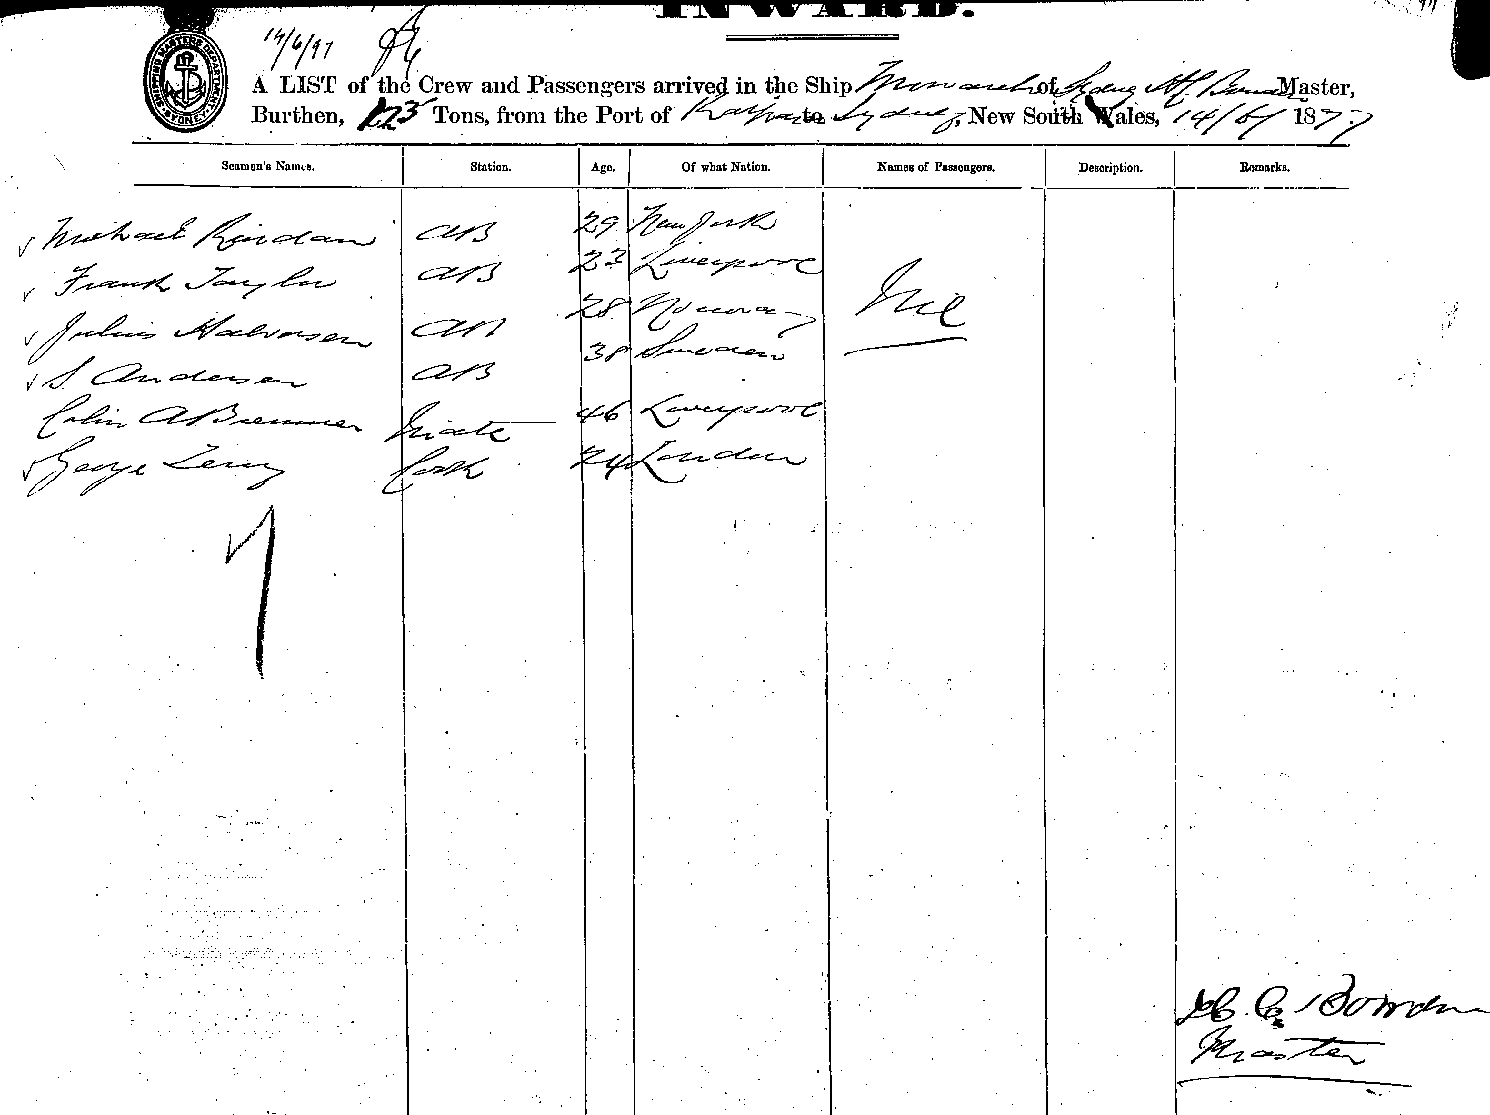 INWARD.
14/6/97
SHIPPING MASTERS DEPARTMENT SYDNEY
A LIST of the Crew and Passengers arrived in the Ship Monarch of Sydney Master,
Burthen, Tons, from the Port of to Sydney, New South Wales, 14/6/ 1877
Seamen's Names. Station. Age. Of what Nation. Names of Passengers. Description. Remarks.
Michael Riordan AB 29 New York
Frank Taylor AB 23 Liverpool
Julius Halvorsen AB 28 Norway Nil
S. Andersen AB 38 Sweden
Colin A Bremner Mate 46 Liverpool
George Terry Cook 24 London
Bowden
Master